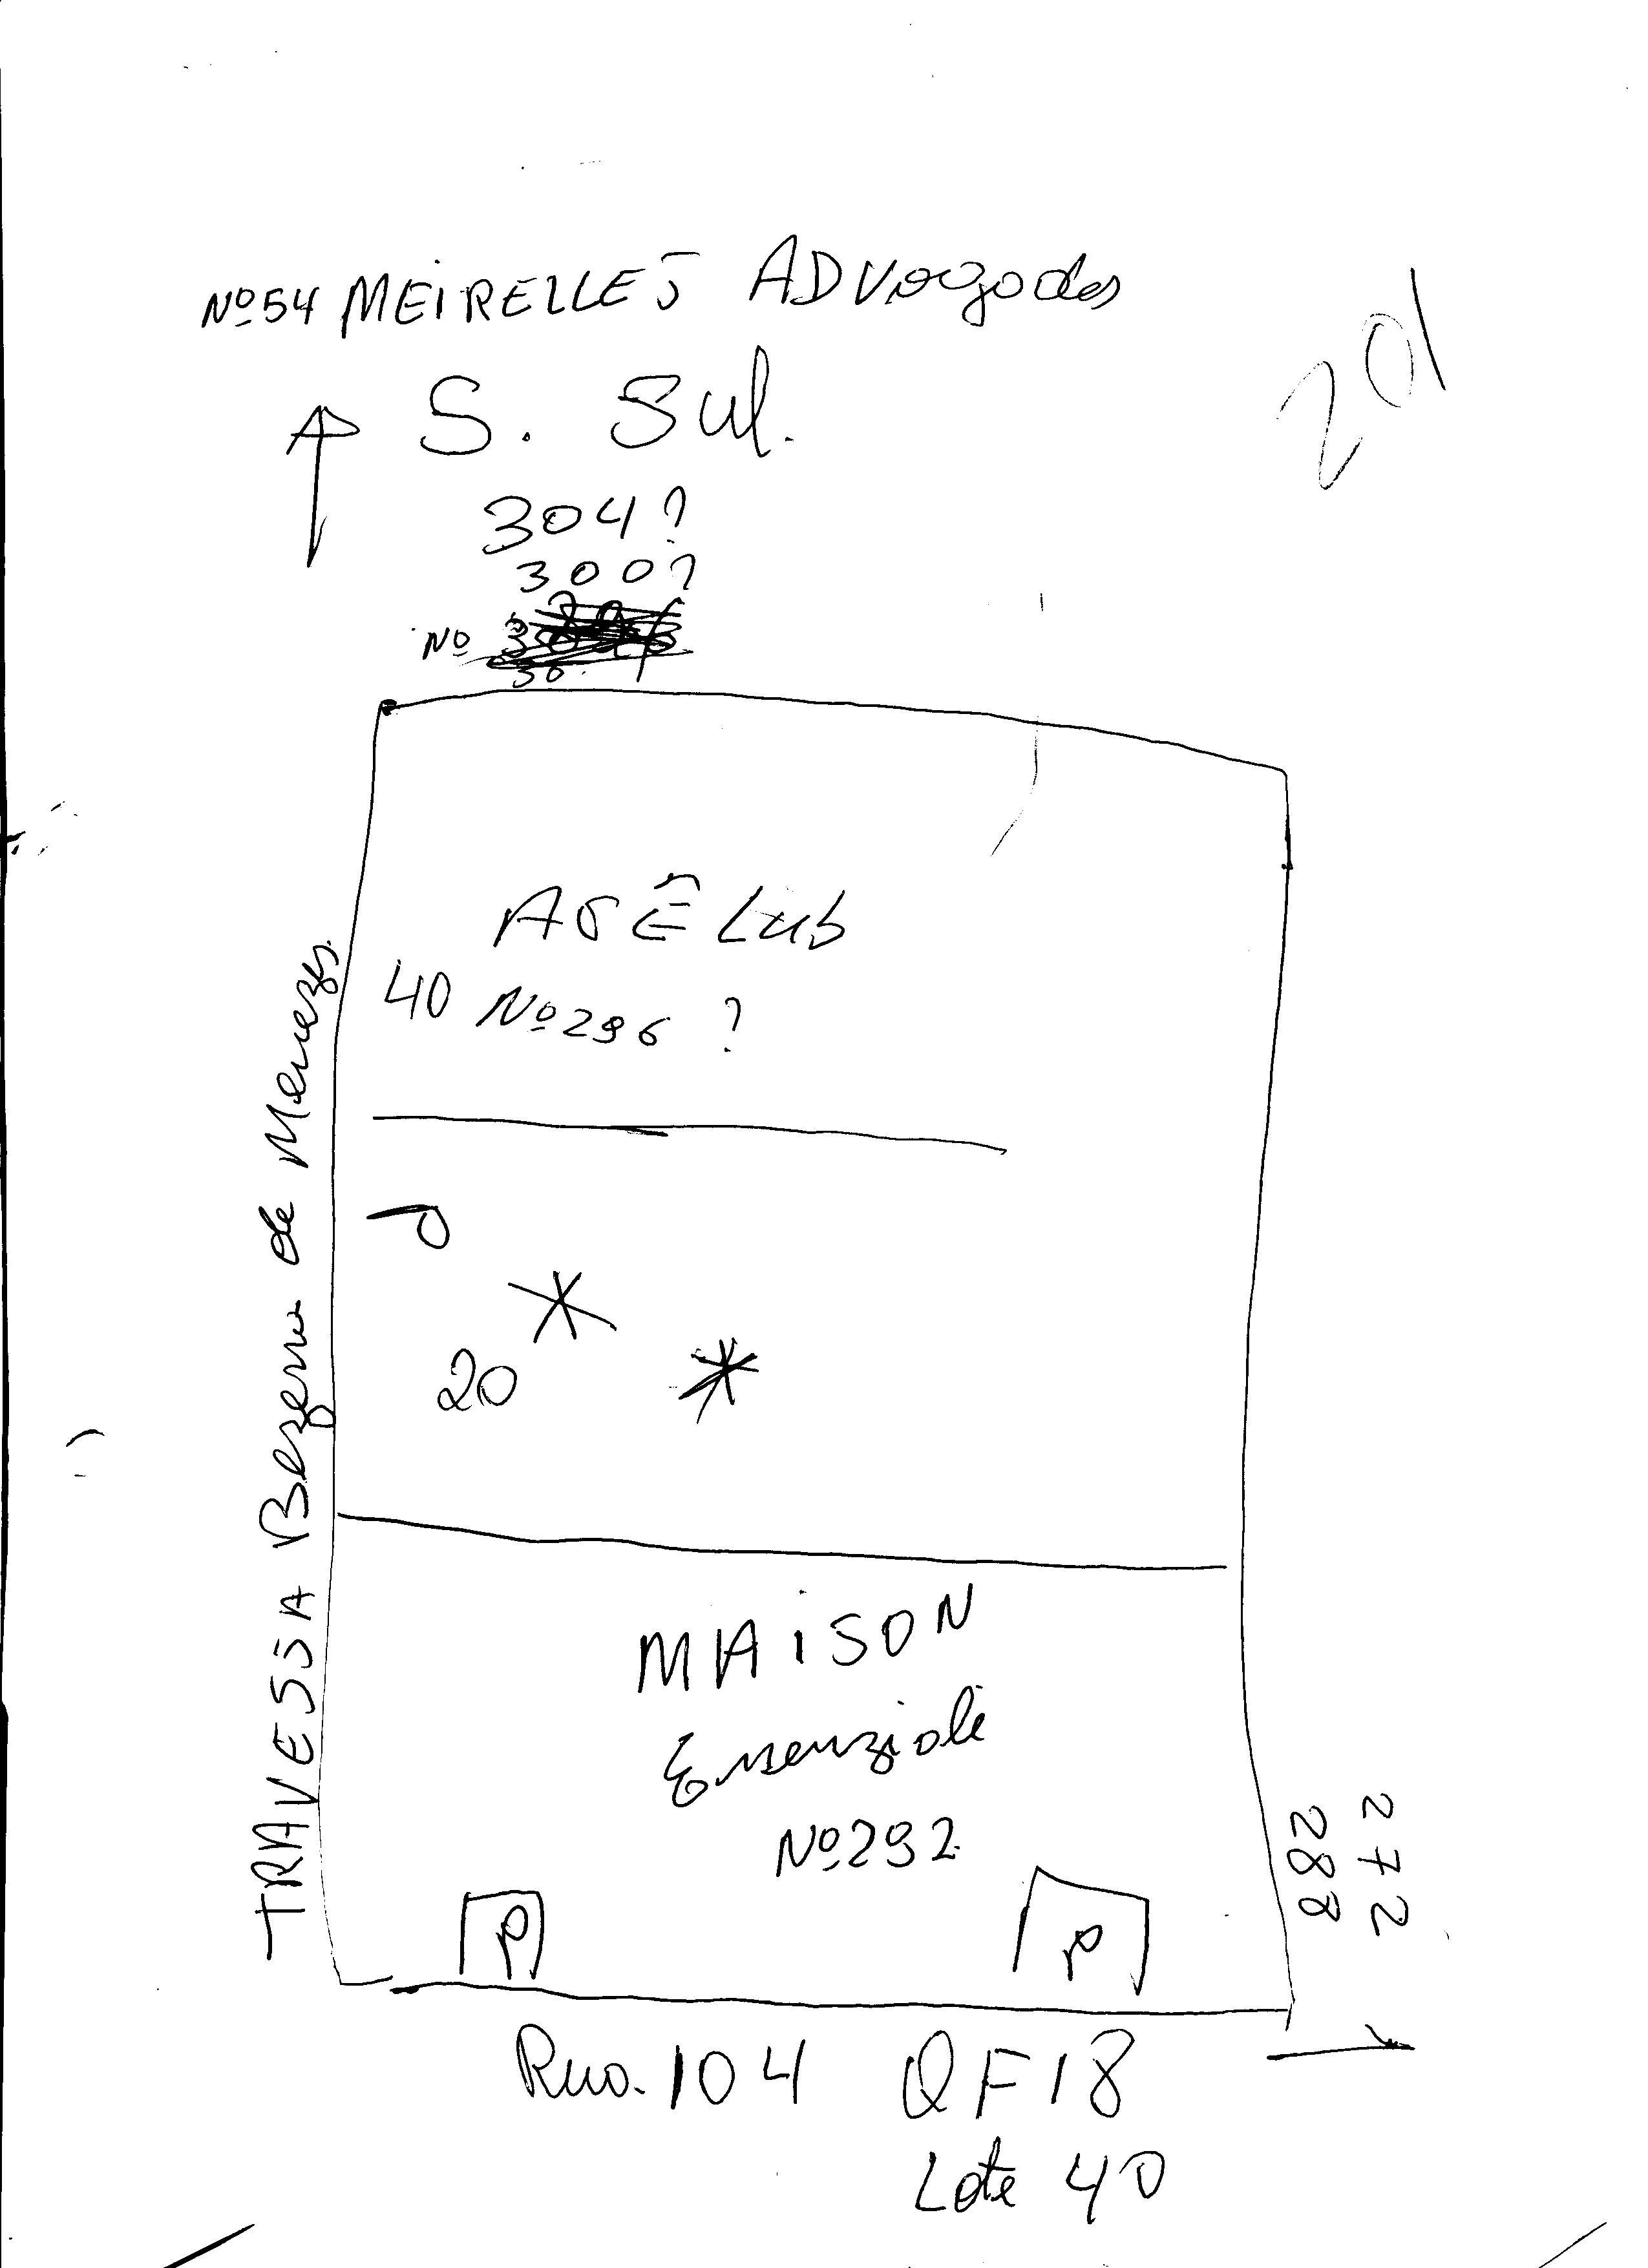 Nº 54 MEIRELLES ADVogados
201
S. Sul.
304?
300?
Nº
ASÊ Lub
40 Nº 296 ?
TRAVESSA Bezerra de Menezes.
20
MAiSON
Essenziale
Nº 292
272
288
P
P
Rua. 104 QF18
Lote 40